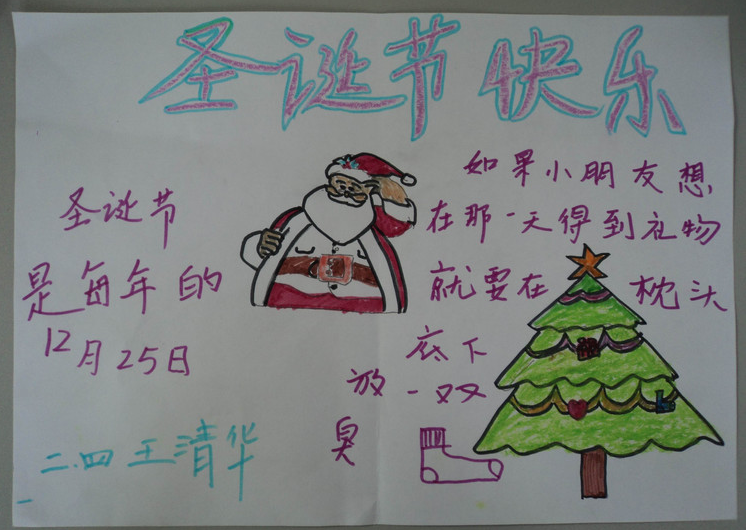 圣诞节快乐
圣诞节
是每年的
12月25日
如果小朋友想
在那一天得到礼物
就要在枕头
底下
放一双
臭
二.四王清华